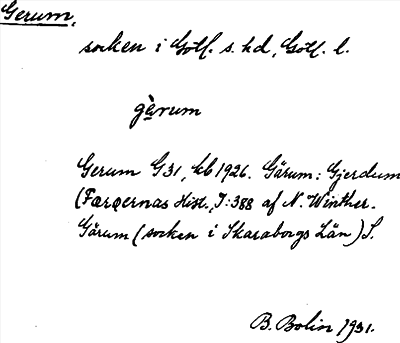 Gerum,
socken i Gotl. s. hd, Gotl. l.
gèrum
Gerum G31, kb 1926. Gärum: Gjerdum
(Færøernas Hist., I:388 af N. Winther.
Gärum (socken i Skaraborgs Län) S.
B. Bolin 1931.